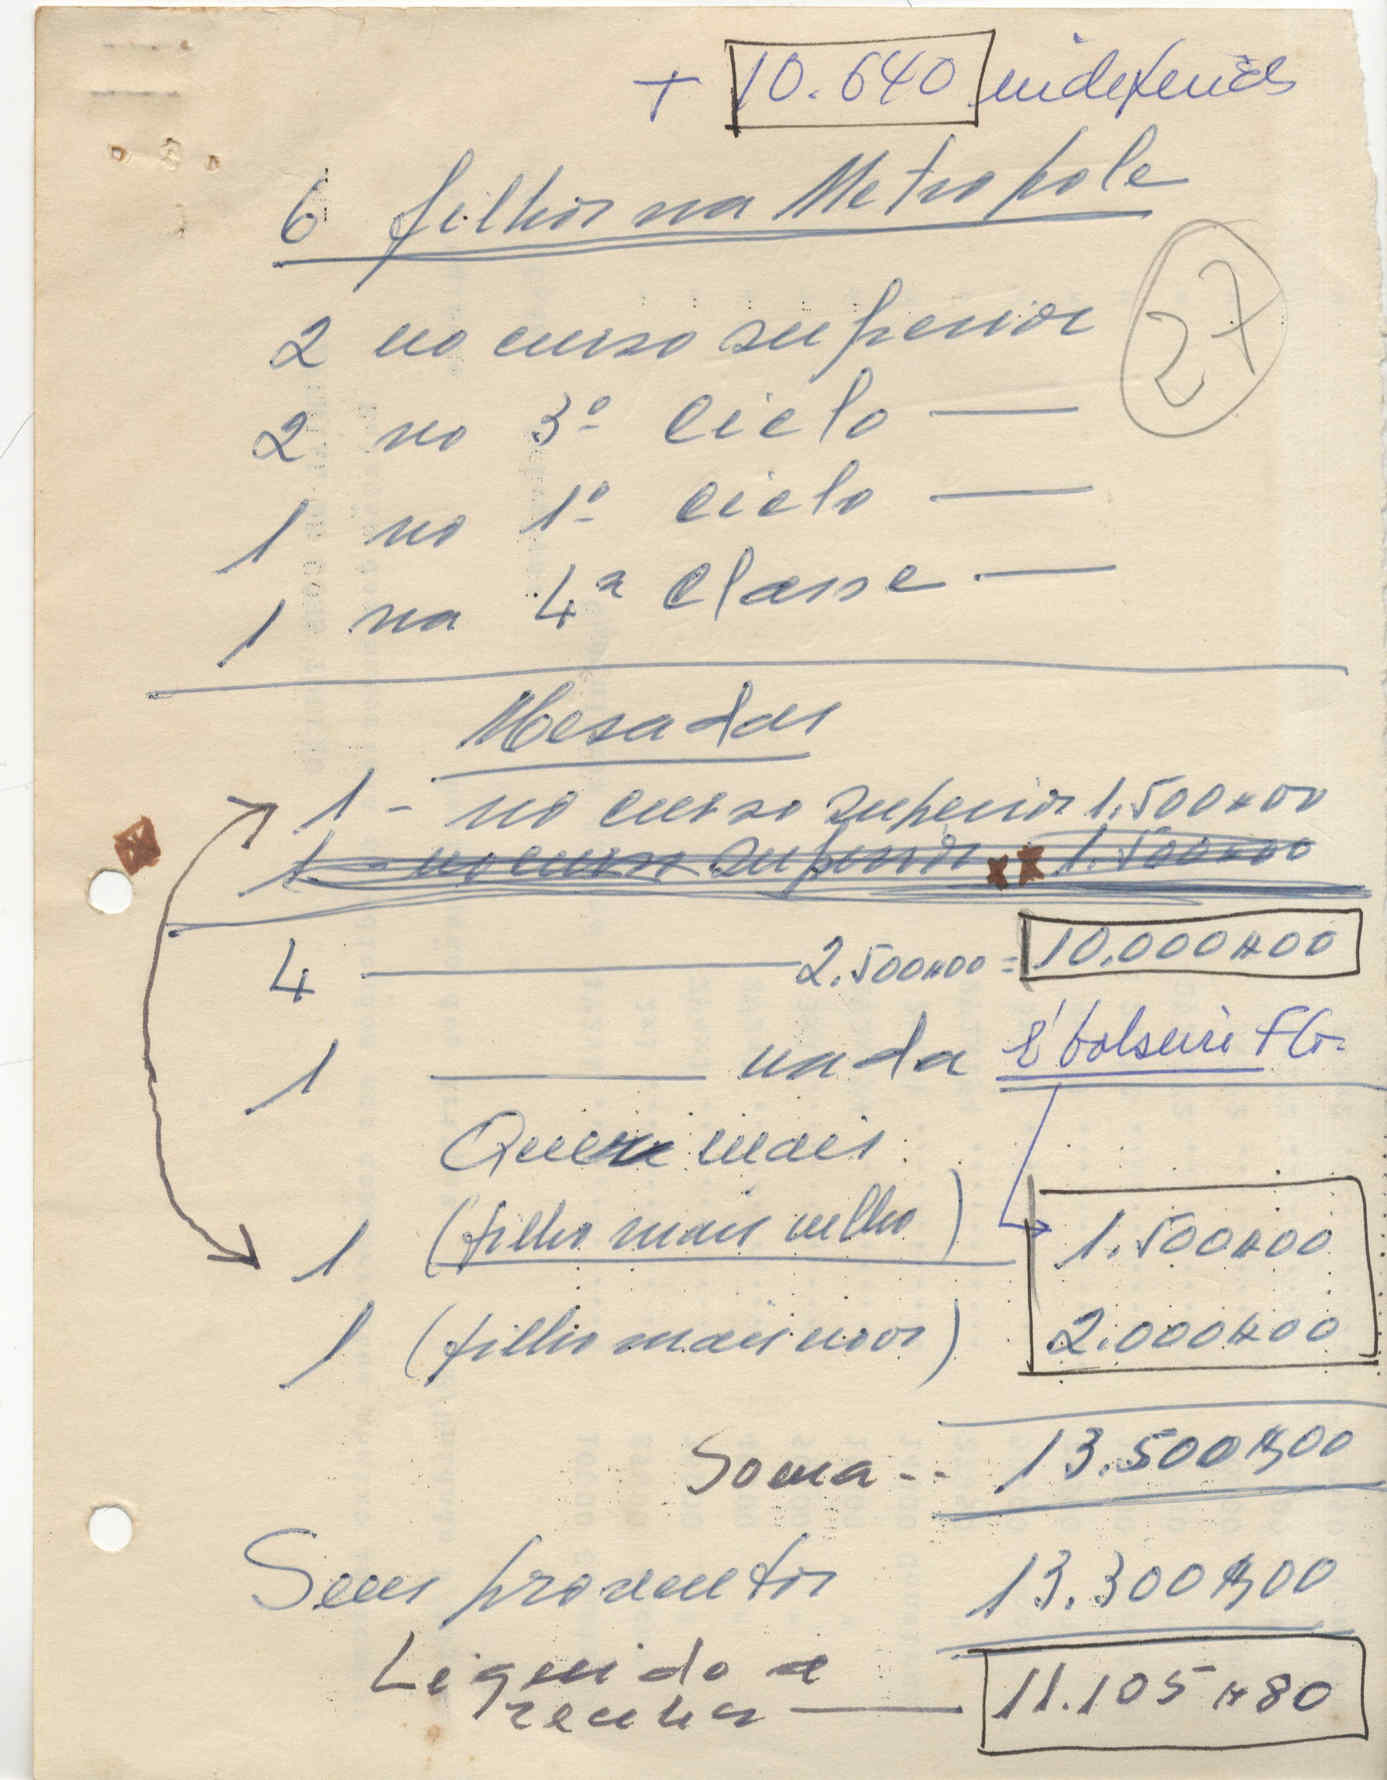 + 10.640
6 filhos na Metropole
27
2 no curso superior
2 no 3º ciclo —
1 no 1º ciclo —
1 na 4ª classe —
Mesadas
1 - no curso superior 1.500$00
1 - no curso superior 1.500$00
4 — 2.500$00 = 10.000$00
1 — nada É bolseiro
Quer mais
1 (filho mais velho) 1.500$00
1 (filho mais novo) 2.000$00
Soma -- 13.500$00
Seus proventos 13.300$00
Liquido a
receber — 11.105$80